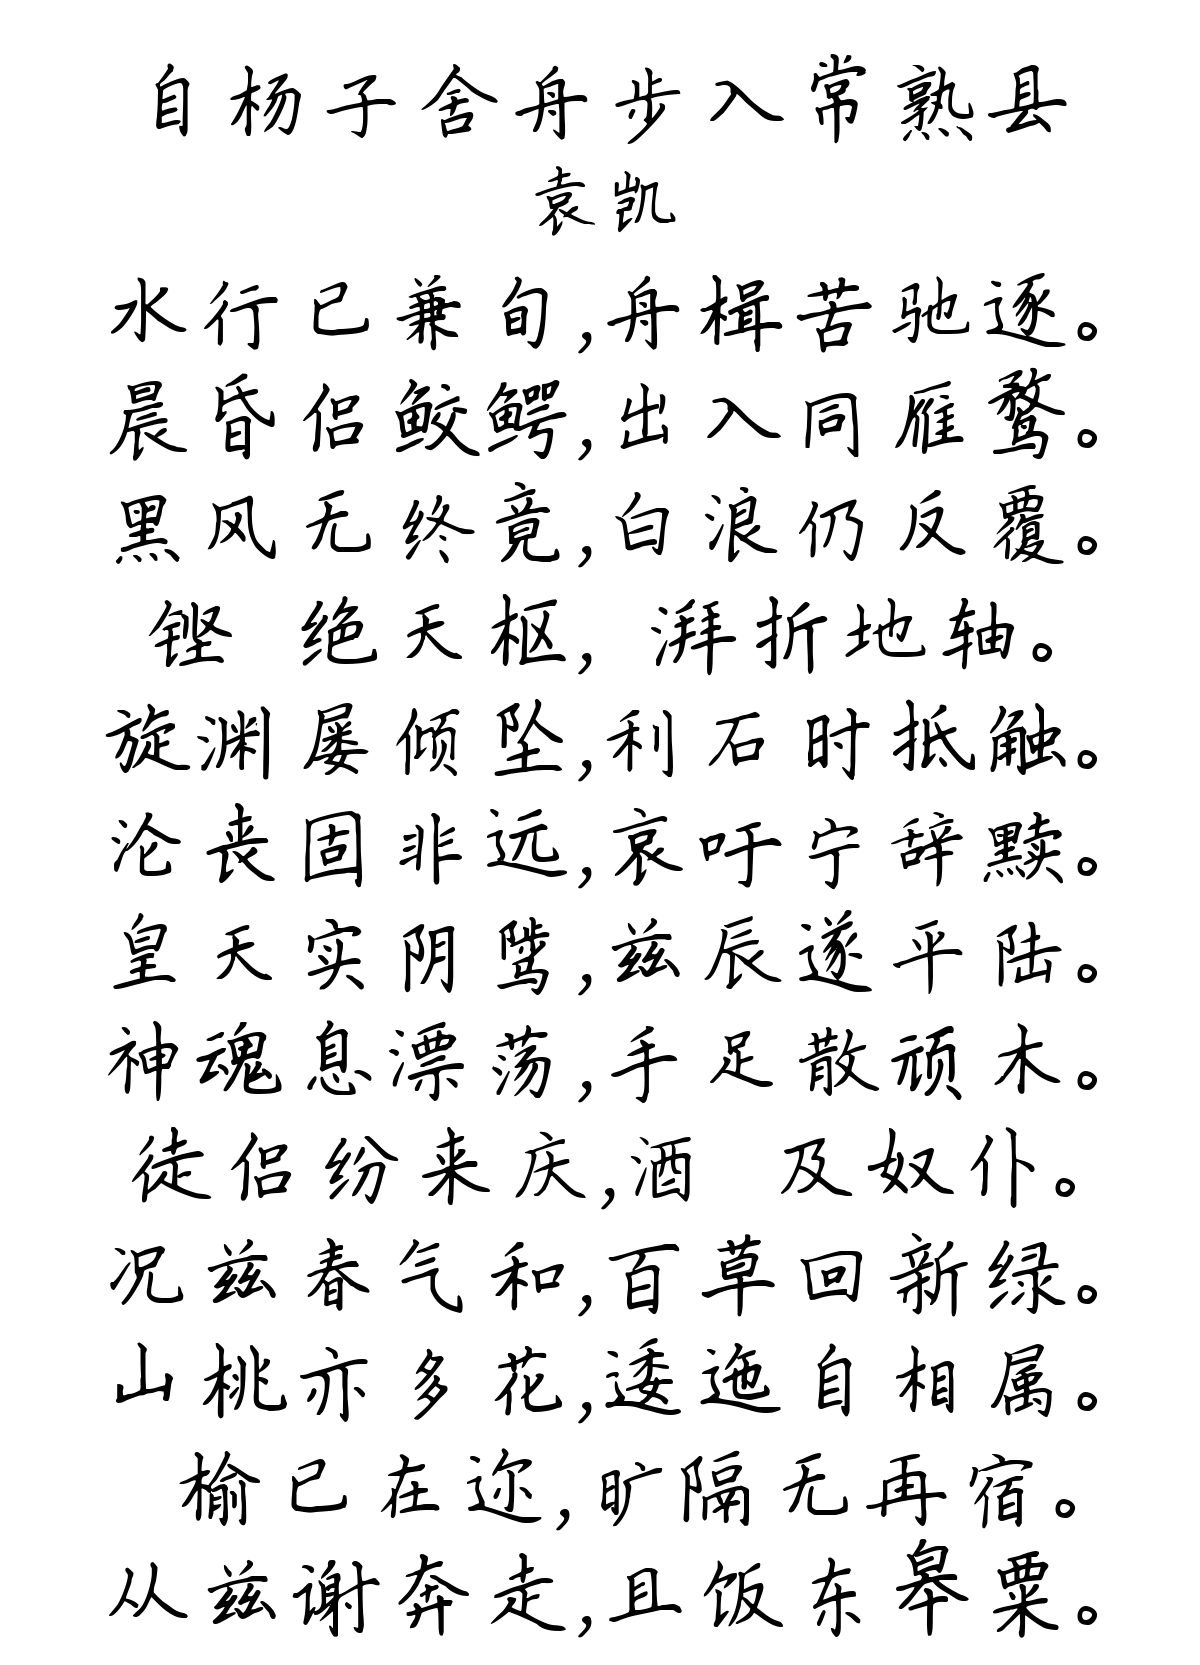 自杨子舍舟步入常熟县
袁凯
水行已兼旬,舟楫苦驰逐。
晨昏侣鲛鳄,出入同雁鹜。
黑风无终竟,白浪仍反覆。
铿 绝天枢, 湃折地轴。
旋渊屡倾坠,利石时抵触。
沦丧固非远,哀吁宁辞黩。
皇天实阴骘,兹辰遂平陆。
神魂息漂荡,手足散顽木。
徒侣纷来庆,酒 及奴仆。
况兹春气和,百草回新绿。
山桃亦多花,逶迤自相属。
榆已在迩,旷隔无再宿。
从兹谢奔走,且饭东皋粟。